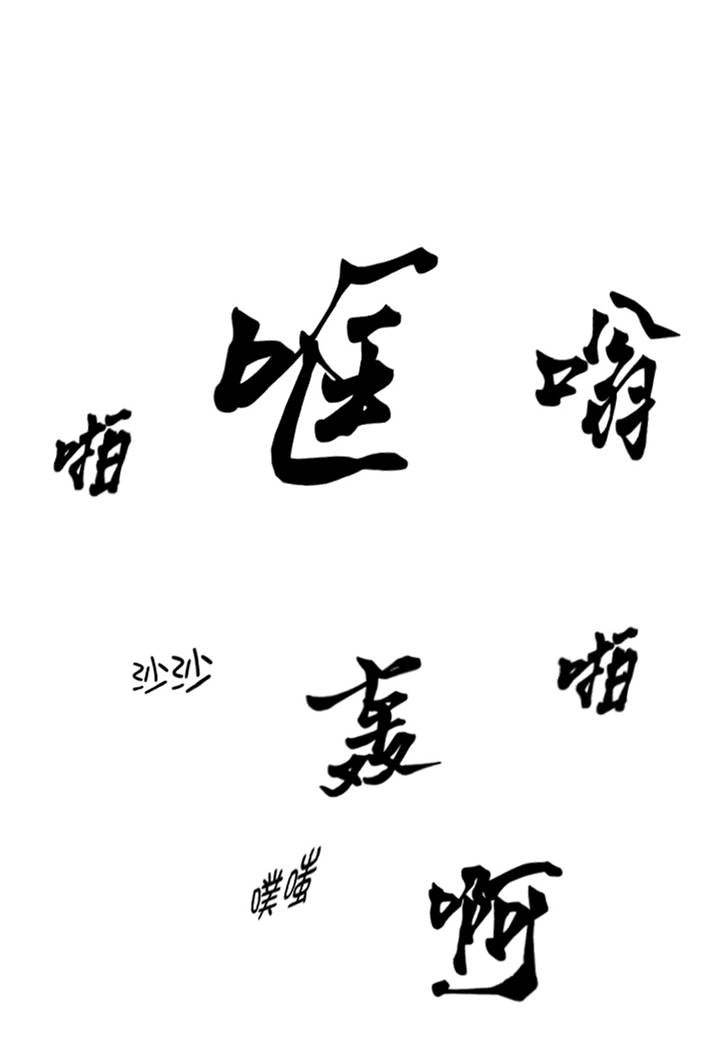 哐
嗡
啪
啪
沙沙
轰
噗嗤
啊